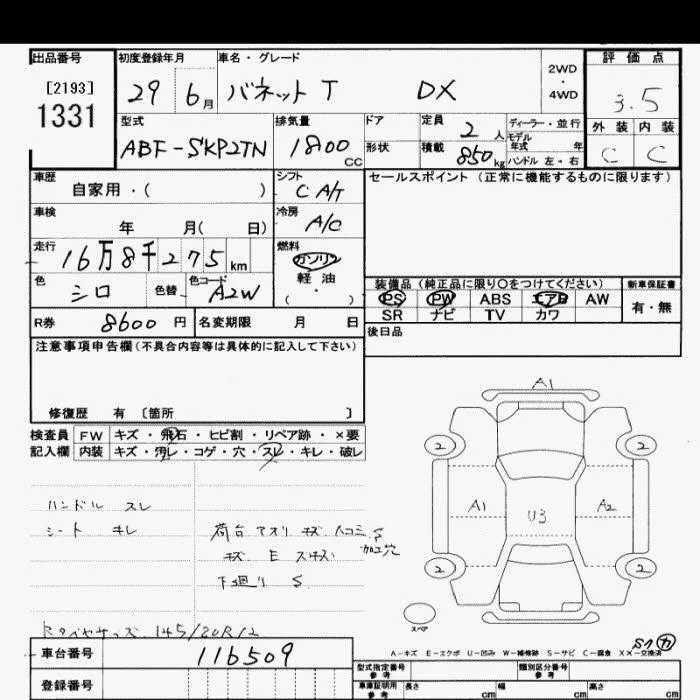 出品番号 初度登録年月 車名・グレード 2WD・4WD 評価点
[2193]
1331
29 6月 バネット T DX 3.5
型式 排気量 ドア 定員 2人 ディーラー・並行 外装 内装
モデル年式 年
ABF-SKP2TN 1800cc 形状 積載 850kg ハンドル 左・右 C C
車歴 シフト セールスポイント (正常に機能するものに限ります)
自家用・( ) C A/T
車検 冷房
年 月( 日) A/C
走行 燃料
16万8千275km ガソリン
軽・油
・( )
色 色替 色コード
シロ A2W
装備品 (純正品に限り○をつけてください) 新車保証書
PS PW ABS エアB AW 有・無
SR ナビ TV カワ
R券 8600円 名変期限 月 日 後日品
注意事項申告欄 (不具合内容等は具体的に記入して下さい)
修復歴 有 〔箇所 〕
検査員 FW キズ・飛石・ヒビ割・リペア跡・×要
記入欄 内装 キズ・汚レ・コゲ・穴・スレ・キレ・破レ
ハンドル スレ
シート キレ
荷台 アオリ キズ 凹コミ
加工穴
キズ E
下廻り S
Rタイヤサイズ 145/80R12
A1
2 2
A1 U3 A2
2 2
スペア
A-キズ E-エクボ U-凹み W-補修跡 S-サビ C-腐食 XX-交換済
車台番号 116509
登録番号
型式指定番号 参考 類別区分番号 参考
車庫証明用 参考 長さ cm 幅 cm 高さ cm